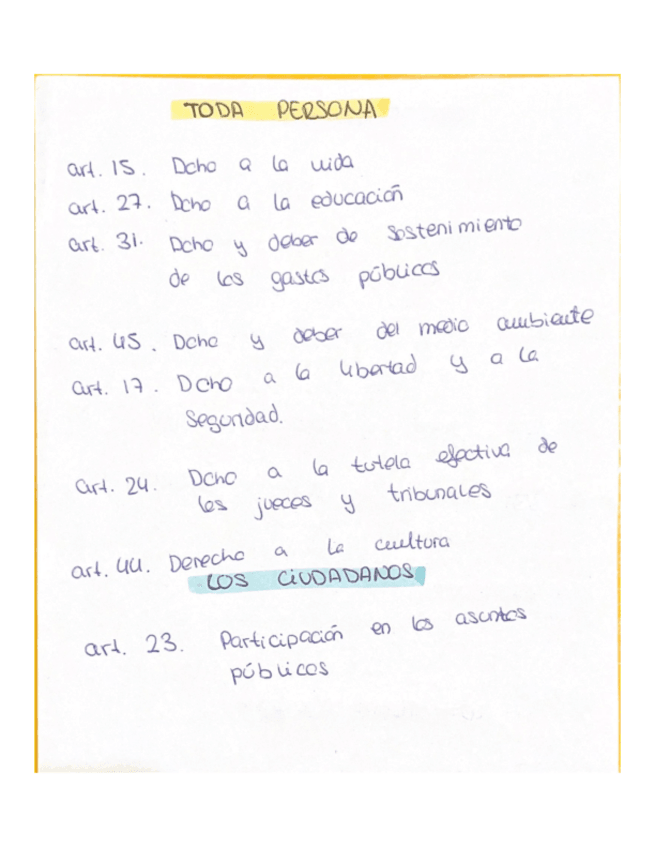 TODA PERSONA
art. 15. Dcho a la vida
art. 27. Dcho a la educación
art. 31. Dcho y deber de sostenimiento
de los gastos públicos
art. 45. Dcho y deber del medio ambiente
art. 17. Dcho a la libertad y a la
Seguridad.
art. 24. Dcho a la tutela efectiva de
los jueces y tribunales
art. 44. Derecho a la cultura
LOS CIUDADANOS
art. 23. Participación en los asuntos
públicos